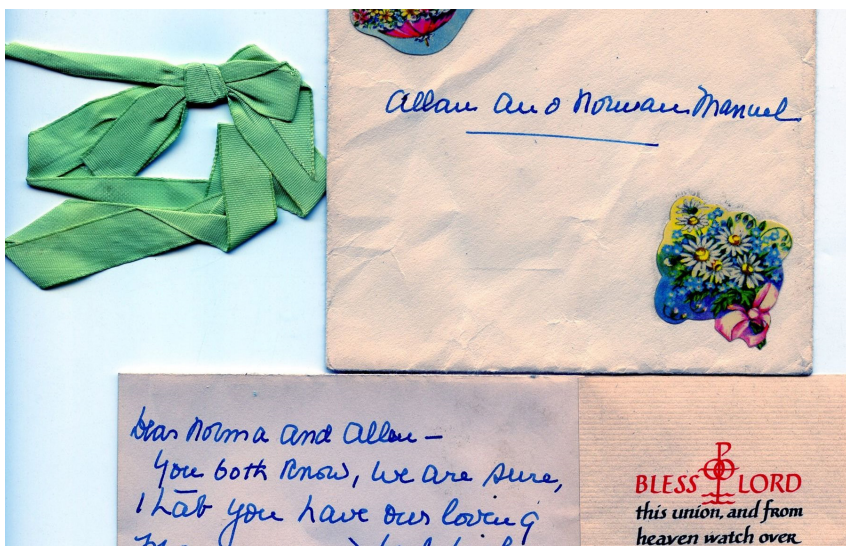 Allan and Norman Manuel
Dear Norma and Allan –
You both know, we are sure,
that you have our loving
BLESS LORD
this union, and from
heaven watch over